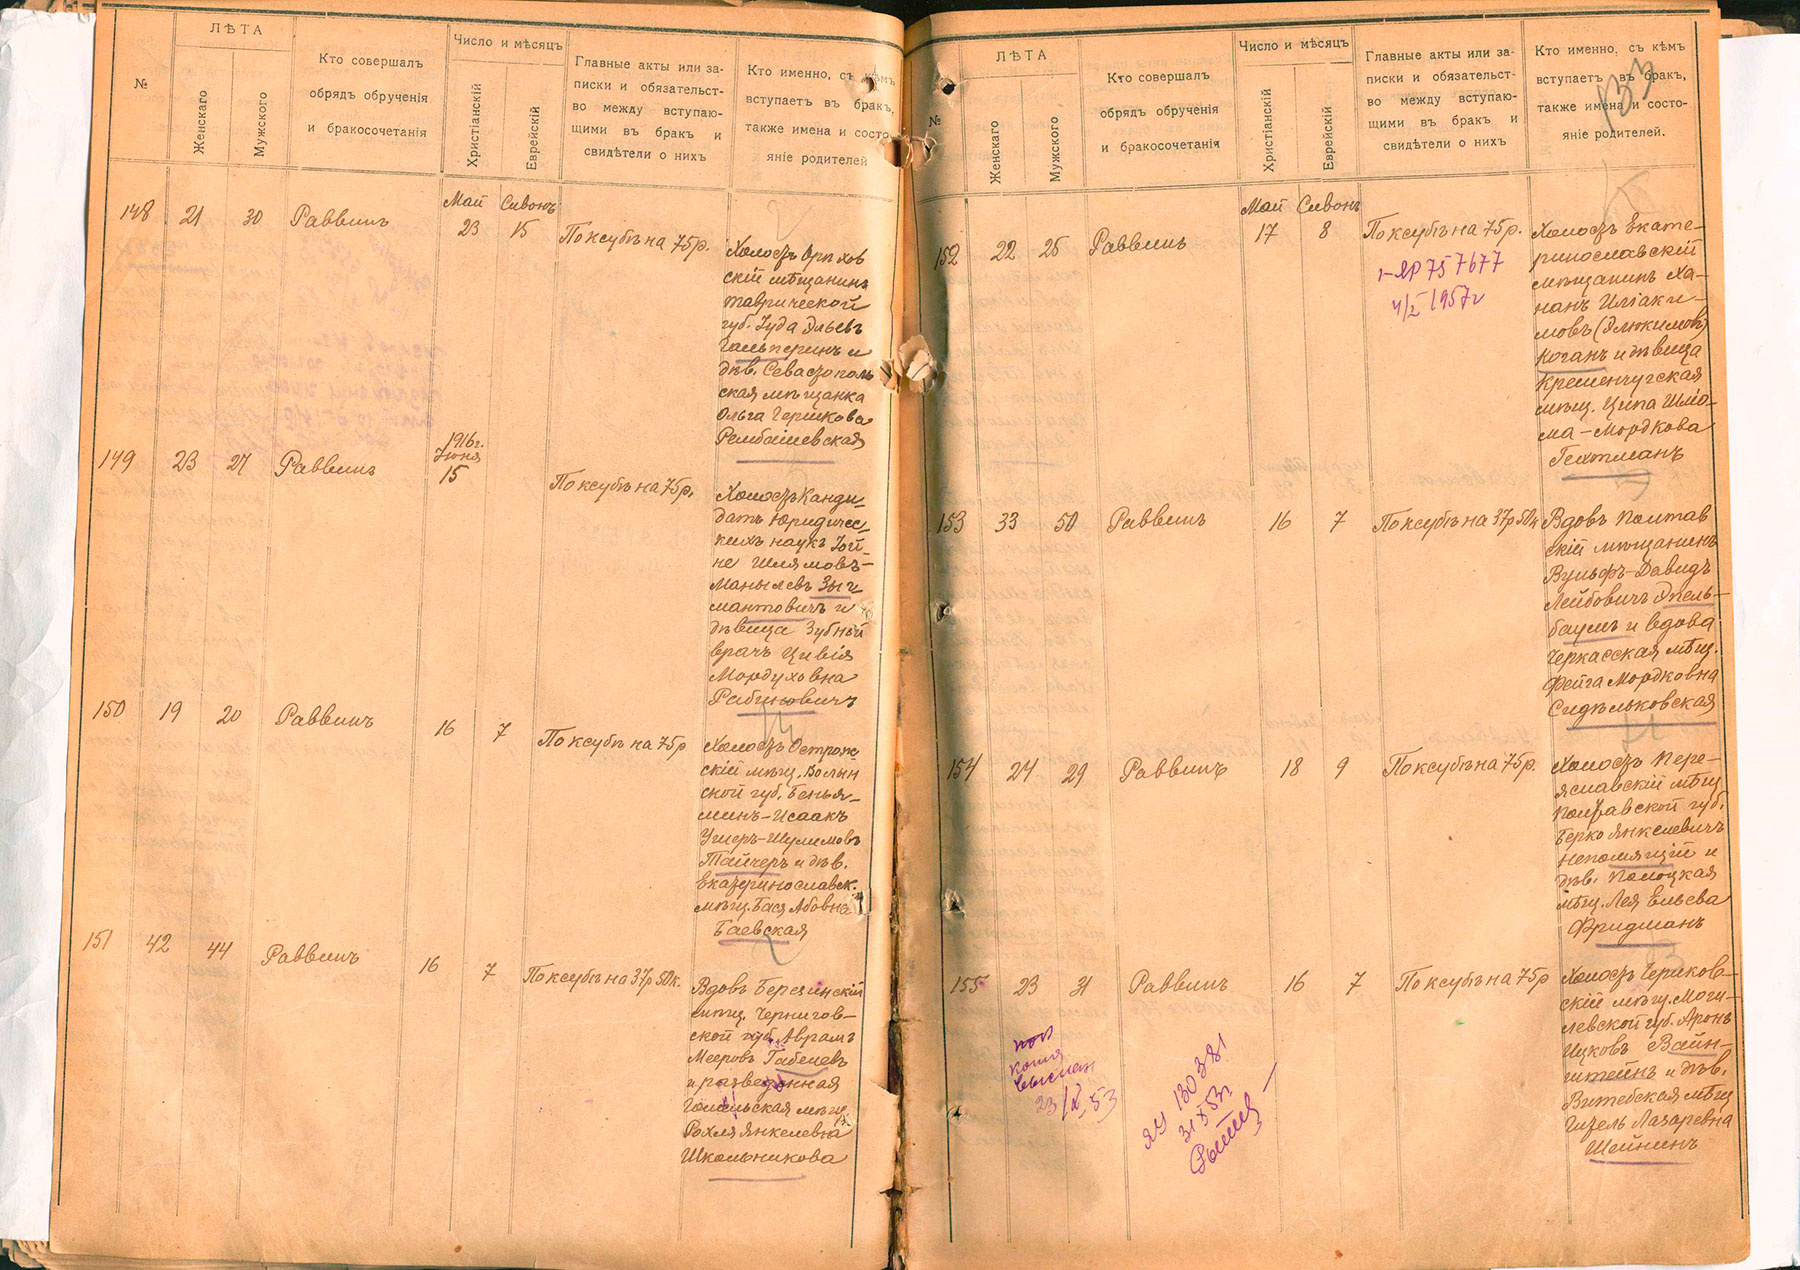 №
ЛѢТА
Женскаго
Мужского
Кто совершалъ
обрядъ обрученія
и бракосочетанія
Число и мѣсяцъ
Христіанскій
Еврейскій
Главные акты или за-
писки и обязательст-
во между вступаю-
щими въ бракъ и
свидѣтели о нихъ
Кто именно, съ кѣмъ
вступаетъ въ бракъ,
также имена и состо-
яніе родителей
148 21 30 Раввинъ
Май Сивонъ
23 15
По ксубѣ на 75р.
Холостъ Орѣхов
скій мѣщанинъ
таврической
губ. Іуда Эльевъ
Гальперинъ и
дѣв. Севастополь
ская мѣщанка
Ольга Гершкова
Рембашевская
149 23 27 Раввинъ
1916г.
Іюня
15
По ксубѣ на 75р.
Холостъ Канди
датъ юридичес
кихъ наукъ Іой-
не Шлямовъ-
Манылевъ Зыг
мантовичъ и
дѣвица Зубной
врачъ Цивія
Мордуховна
Рабиновичъ
150 19 20 Раввинъ
16 7
По ксубѣ на 75р
Холостъ Острож
скій мѣщ. Волын
ской губ. Бенья-
минъ-Исаакъ
Ушеръ-Шулимовъ
Тайчеръ и дѣв.
Екатеринославск.
мѣщ. Бася Абовна
Баевская
151 42 44 Раввинъ
16 7
По ксубѣ на 37р 50к.
Вдовъ Березинскій
мѣщ. Чернигов-
ской губ. Аврамъ
Мееровъ Гибелевъ
и разведенная
Гомельская мѣщ.
Рохля Янкелевна
Школьникова
№
ЛѢТА
Женскаго
Мужского
Кто совершалъ
обрядъ обрученія
и бракосочетанія
Число и мѣсяцъ
Христіанскій
Еврейскій
Главные акты или за-
писки и обязательст-
во между вступаю-
щими въ бракъ и
свидѣтели о нихъ
Кто именно, съ кѣмъ
вступаетъ въ бракъ,
также имена и состо-
яніе родителей.
133
152 22 25 Раввинъ
Май Сивонъ
17 8
По ксубѣ на 75р.
I-ЯР 757677
4/I 1957г
Холостъ Екате-
ринославскій
мѣщанинъ Ха-
нанъ Иліаки-
мовъ (Элюкимовъ)
Коганъ и дѣвица
Кременчугская
мѣщ. Ципа Шліо-
ма-Мордкова
Гехтманъ
153 33 50 Раввинъ
16 7
По ксубѣ на 37р 50к
Вдовъ Полтав
скій мѣщанинъ
Вульфъ-Давидъ
Лейбовичъ Эпель-
баумъ и вдова
Черкасская мѣщ.
Фейга Мордковна
Сидѣльковская
154 24 29 Раввинъ
18 9
По ксубѣ на 75р.
Холостъ Пере-
яславскій мѣщ
Полтавской губ.
Берко Янкелевичъ
Непомящій и
дѣв. Полоцкая
мѣщ. Лея Ельева
Фридманъ
155 23 31 Раввинъ
16 7
По ксубѣ на 75р
Холостъ Чериков-
скій мѣщ. Моги-
левской губ. Аронъ
Ицковъ Вайн-
штейнъ и дѣв.
Витебская мѣщ
Гизель Лазаревна
Шейнинъ
копия
выслан
23/X 53
ЯУ 130381
31 X 53г